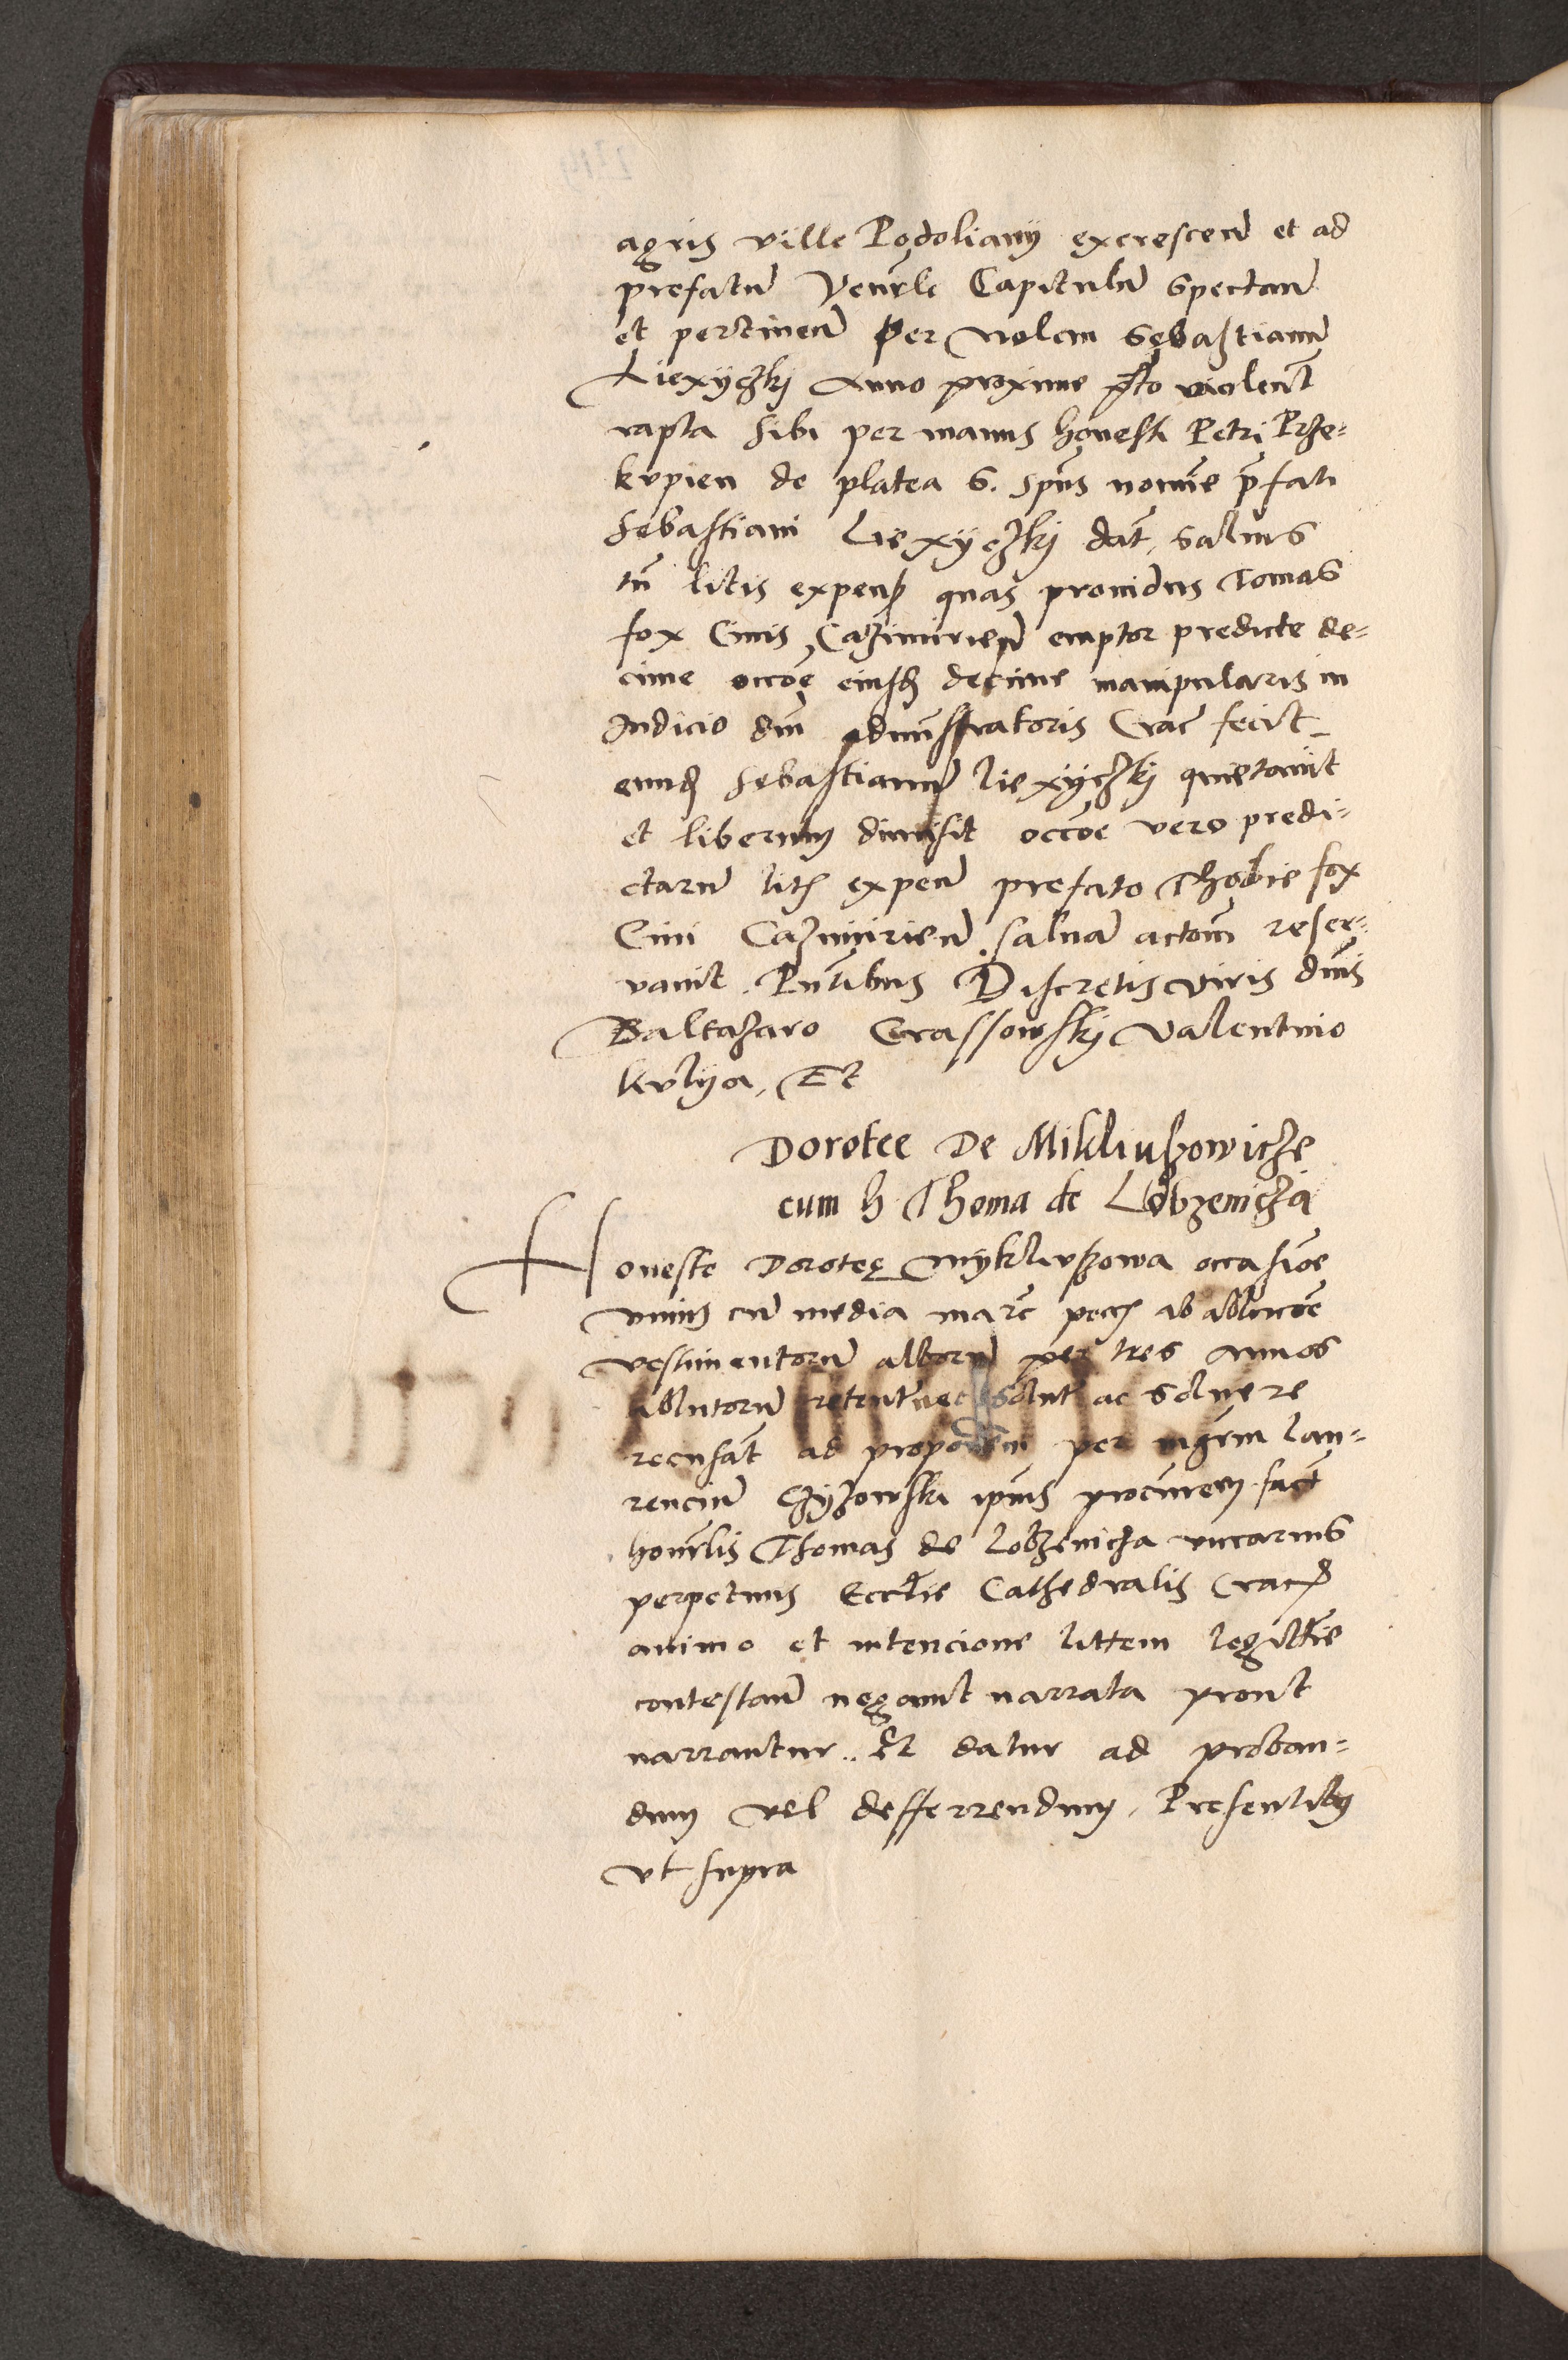 agris ville Podoliany excrescen̄ et ad
prefatū Venrle Capitulū Spectan̄
et pertinen̄ per nolem Sebastianū
Liexyczkj Anno proxime violent̄
rapta sibi per manus honesti Petri Prze-
kupien de platea S. spūs noīne p̄fati
Sebastiani Liexyczkj dat̄, salvis
tn̄ litis expen̄ quas providus Tomas
fox Civis Cazimirien̄ emptor predicte de-
cime occōe eiusd̄ decime manipularis in
Judicio dn̄i adm̄istratoris Crac̄ fecit
eund̄ Sebastianū liexyczkj quietavit
et liberum dimisit occōe vero predi-
ctarū lit̄ expen̄ prefato Thobie fox
Civi Cazimirien̄ salvā actōm reser-
vavit. Pn̄tibus Discretis viris dn̄is
Baltazaro Crassowskj Valentino
kulya, Et
Dorotee De Mikliuszowicze
cum h Thoma de Lobzenicza
Honeste Dorotee Mykliuszowa occasiōe
unius cū media marc̄ pecc̄ ab ablucōe
vestimentorū alborū per tres annos
ablutorū retent̄ nec solut̄ ac solvere
recusat̄ ad propoōem per mgr̄m Lau-
renciū Czyzowski ipius procurem fact̄
honrlis Thomas de lobzenicza vicarius
perpetuus Eccl̄ie Cathedralis Crac̄
animo et intencione littem legitt̄ie
contestan̄ negavit narrata prout
narrantur.. Et datur ad proban-
dum vel defferrendum, Presentibus
ut supra